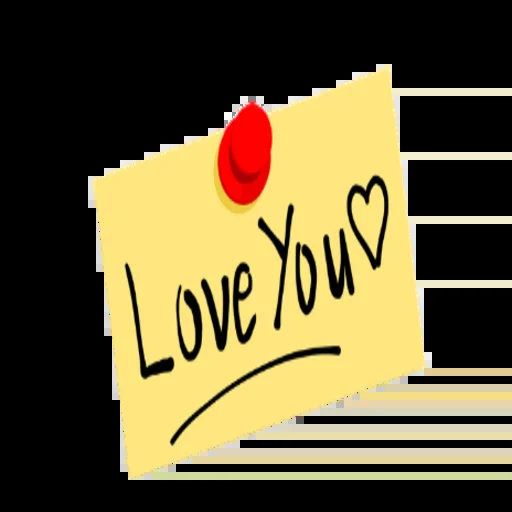 Love You♡